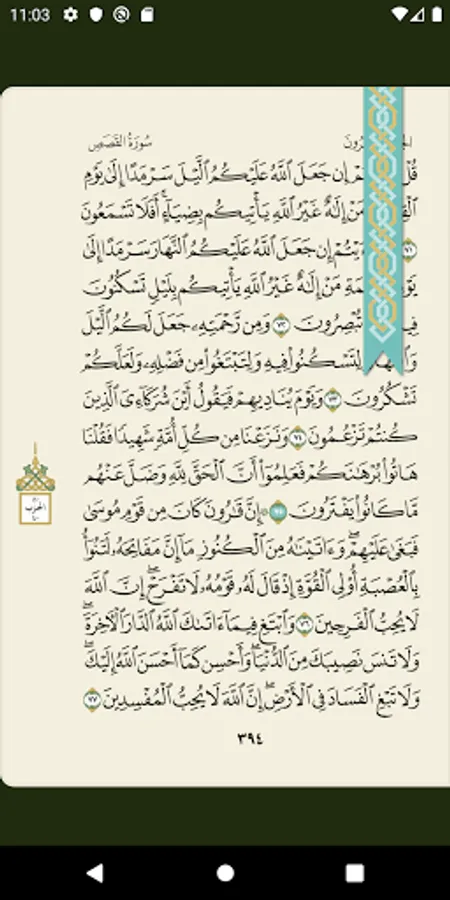 11:03
سُورَةُ القَصَصِ
قُلْ إِن جَعَلَ ٱللَّهُ عَلَيْكُمُ ٱلَّيْلَ سَرْمَدًا إِلَىٰ يَوْمِ
مَنْ إِلَٰهٌ غَيْرُ ٱللَّهِ يَأْتِيكُم بِضِيَآءٍ ۖ أَفَلَا تَسْمَعُونَ
٧١ إِن جَعَلَ ٱللَّهُ عَلَيْكُمُ ٱلنَّهَارَ سَرْمَدًا إِلَىٰ
مَنْ إِلَٰهٌ غَيْرُ ٱللَّهِ يَأْتِيكُم بِلَيْلٍ تَسْكُنُونَ
تُبْصِرُونَ ٧٢ وَمِن رَّحْمَتِهِۦ جَعَلَ لَكُمُ ٱلَّيْلَ
لِتَسْكُنُوا۟ فِيهِ وَلِتَبْتَغُوا۟ مِن فَضْلِهِۦ وَلَعَلَّكُمْ
تَشْكُرُونَ ٧٣ وَيَوْمَ يُنَادِيهِمْ فَيَقُولُ أَيْنَ شُرَكَآءِىَ ٱلَّذِينَ
كُنتُمْ تَزْعُمُونَ ٧٤ وَنَزَعْنَا مِن كُلِّ أُمَّةٍ شَهِيدًا فَقُلْنَا
هَاتُوا۟ بُرْهَٰنَكُمْ فَعَلِمُوٓا۟ أَنَّ ٱلْحَقَّ لِلَّهِ وَضَلَّ عَنْهُم
مَّا كَانُوا۟ يَفْتَرُونَ ٧٥ ۞ إِنَّ قَٰرُونَ كَانَ مِن قَوْمِ مُوسَىٰ
الحزب
فَبَغَىٰ عَلَيْهِمْ ۖ وَءَاتَيْنَٰهُ مِنَ ٱلْكُنُوزِ مَآ إِنَّ مَفَاتِحَهُۥ لَتَنُوٓأُ
بِٱلْعُصْبَةِ أُو۟لِى ٱلْقُوَّةِ إِذْ قَالَ لَهُۥ قَوْمُهُۥ لَا تَفْرَحْ ۖ إِنَّ ٱللَّهَ
لَا يُحِبُّ ٱلْفَرِحِينَ ٧٦ وَٱبْتَغِ فِيمَآ ءَاتَىٰكَ ٱللَّهُ ٱلدَّارَ ٱلْءَاخِرَةَ ۖ
وَلَا تَنسَ نَصِيبَكَ مِنَ ٱلدُّنْيَا ۖ وَأَحْسِن كَمَآ أَحْسَنَ ٱللَّهُ إِلَيْكَ ۖ
وَلَا تَبْغِ ٱلْفَسَادَ فِى ٱلْأَرْضِ ۖ إِنَّ ٱللَّهَ لَا يُحِبُّ ٱلْمُفْسِدِينَ ٧٧
٣٩٤